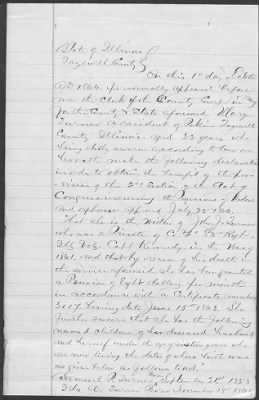 State of Illinois
Tazewell County
On this 1st day of
A.D. 1866 personally appeared before
me the Clerk of the County Court in &
for the County & State aforesaid Mary
Turner a resident of Pekin Tazewell
County Illinois aged 33 years who
being duly sworn according to law on
her oath make the following declaration
in order to obtain the benefit of the pro-
vision of the 2nd Section of the Act of
Congress increasing the Pensions of Widows
and orphans approved July 25 1866.
That she is the Widow of John Turner
who was a Private of Co "A" Regt
Ills Vols. Capt Kennedy in the War of
1861, and that by reason of his death in
the service aforesaid she has been granted
a Pension of Eight dollars per month
in accordance with a Certificate number
bearing date June 15th 1863. She
further swears that she has the following
named children of her deceased husband
and herself under sixteen years who
are now living the dates of whose birth were
as given below as follows to wit
Samuel P. Turner, September 2nd 1853
Ida A. Turner Born November 18th